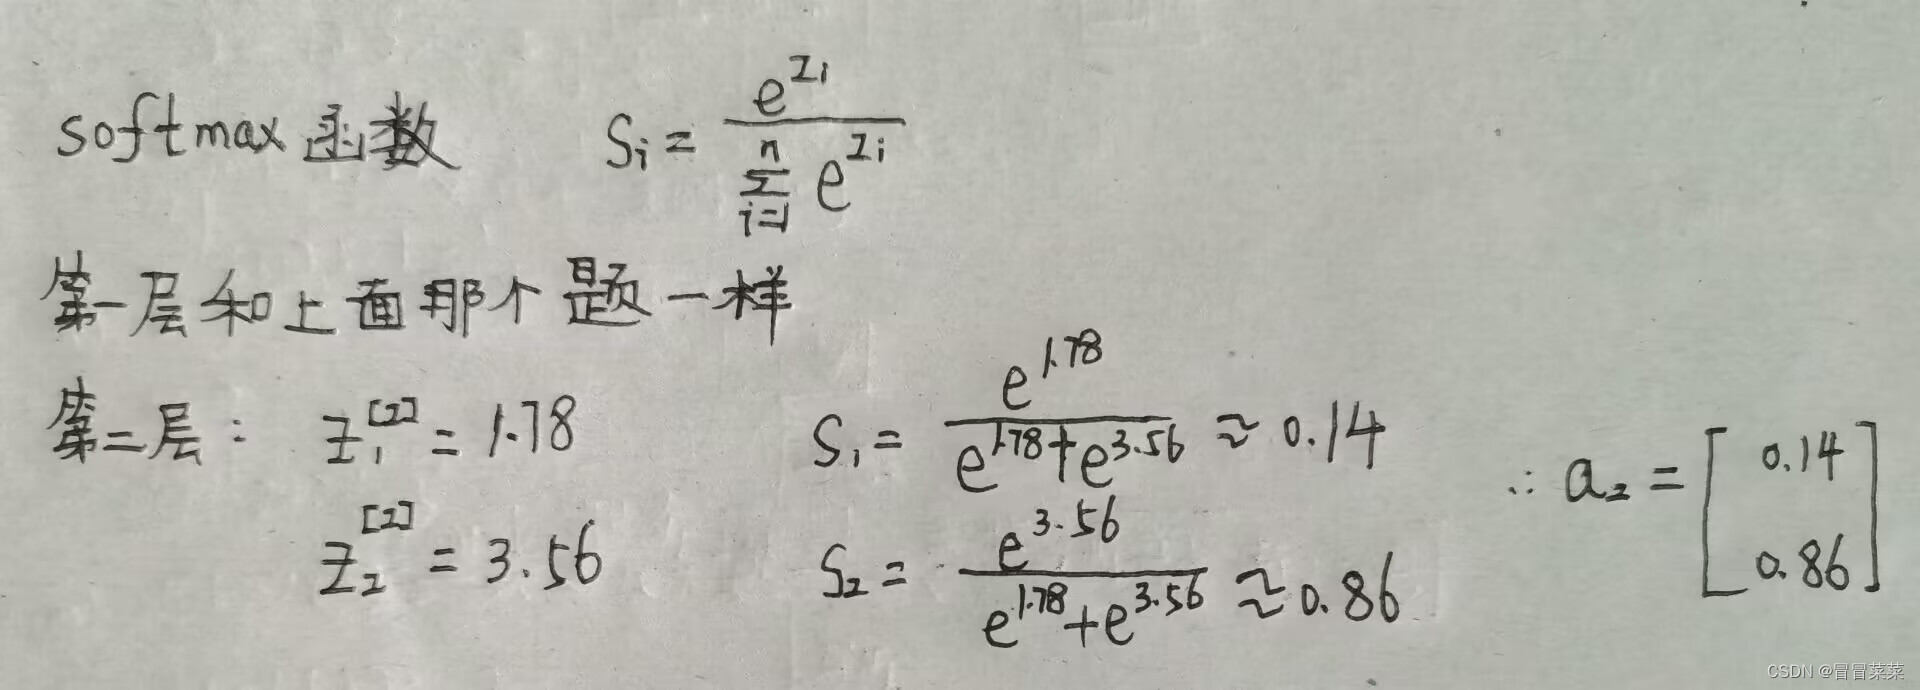 softmax函数 Si = e^zi / Σ(i=1→n) e^zi
第一层和上面那个题一样
第二层: z₁^[2] = 1.78 S₁ = e^1.78 / (e^1.78 + e^3.56) ≈ 0.14
z₂^[2] = 3.56 S₂ = e^3.56 / (e^1.78 + e^3.56) ≈ 0.86
∴ a₂ = [0.14 0.86]
CSDN @冒冒菜菜